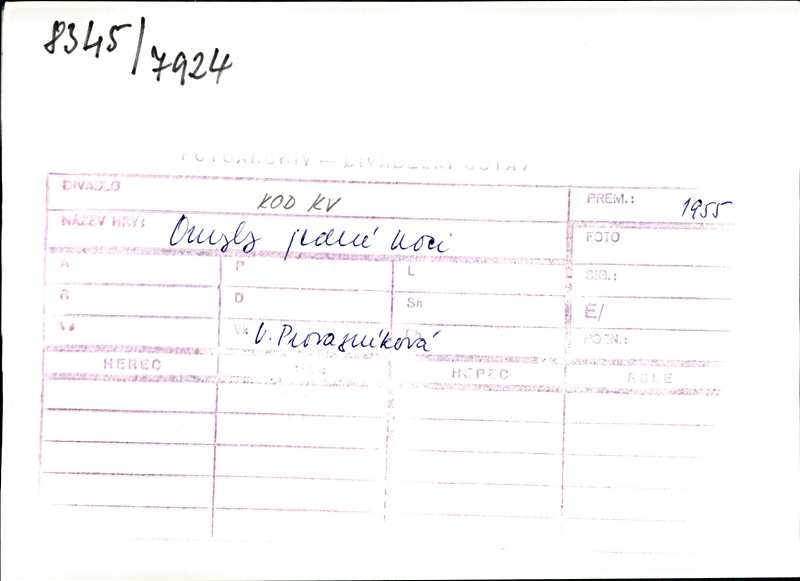 8345/7924
FOTOARCHIV — DIVADELNÍ ÚSTAV
DIVADLO KOD KV PREM.: 1955
NÁZEV HRY: Omyly jedné noci FOTO
A P L SIG.:
R D Sh E/
Vk V. Provazníková POZN.:
HEREC HEREC ROLE